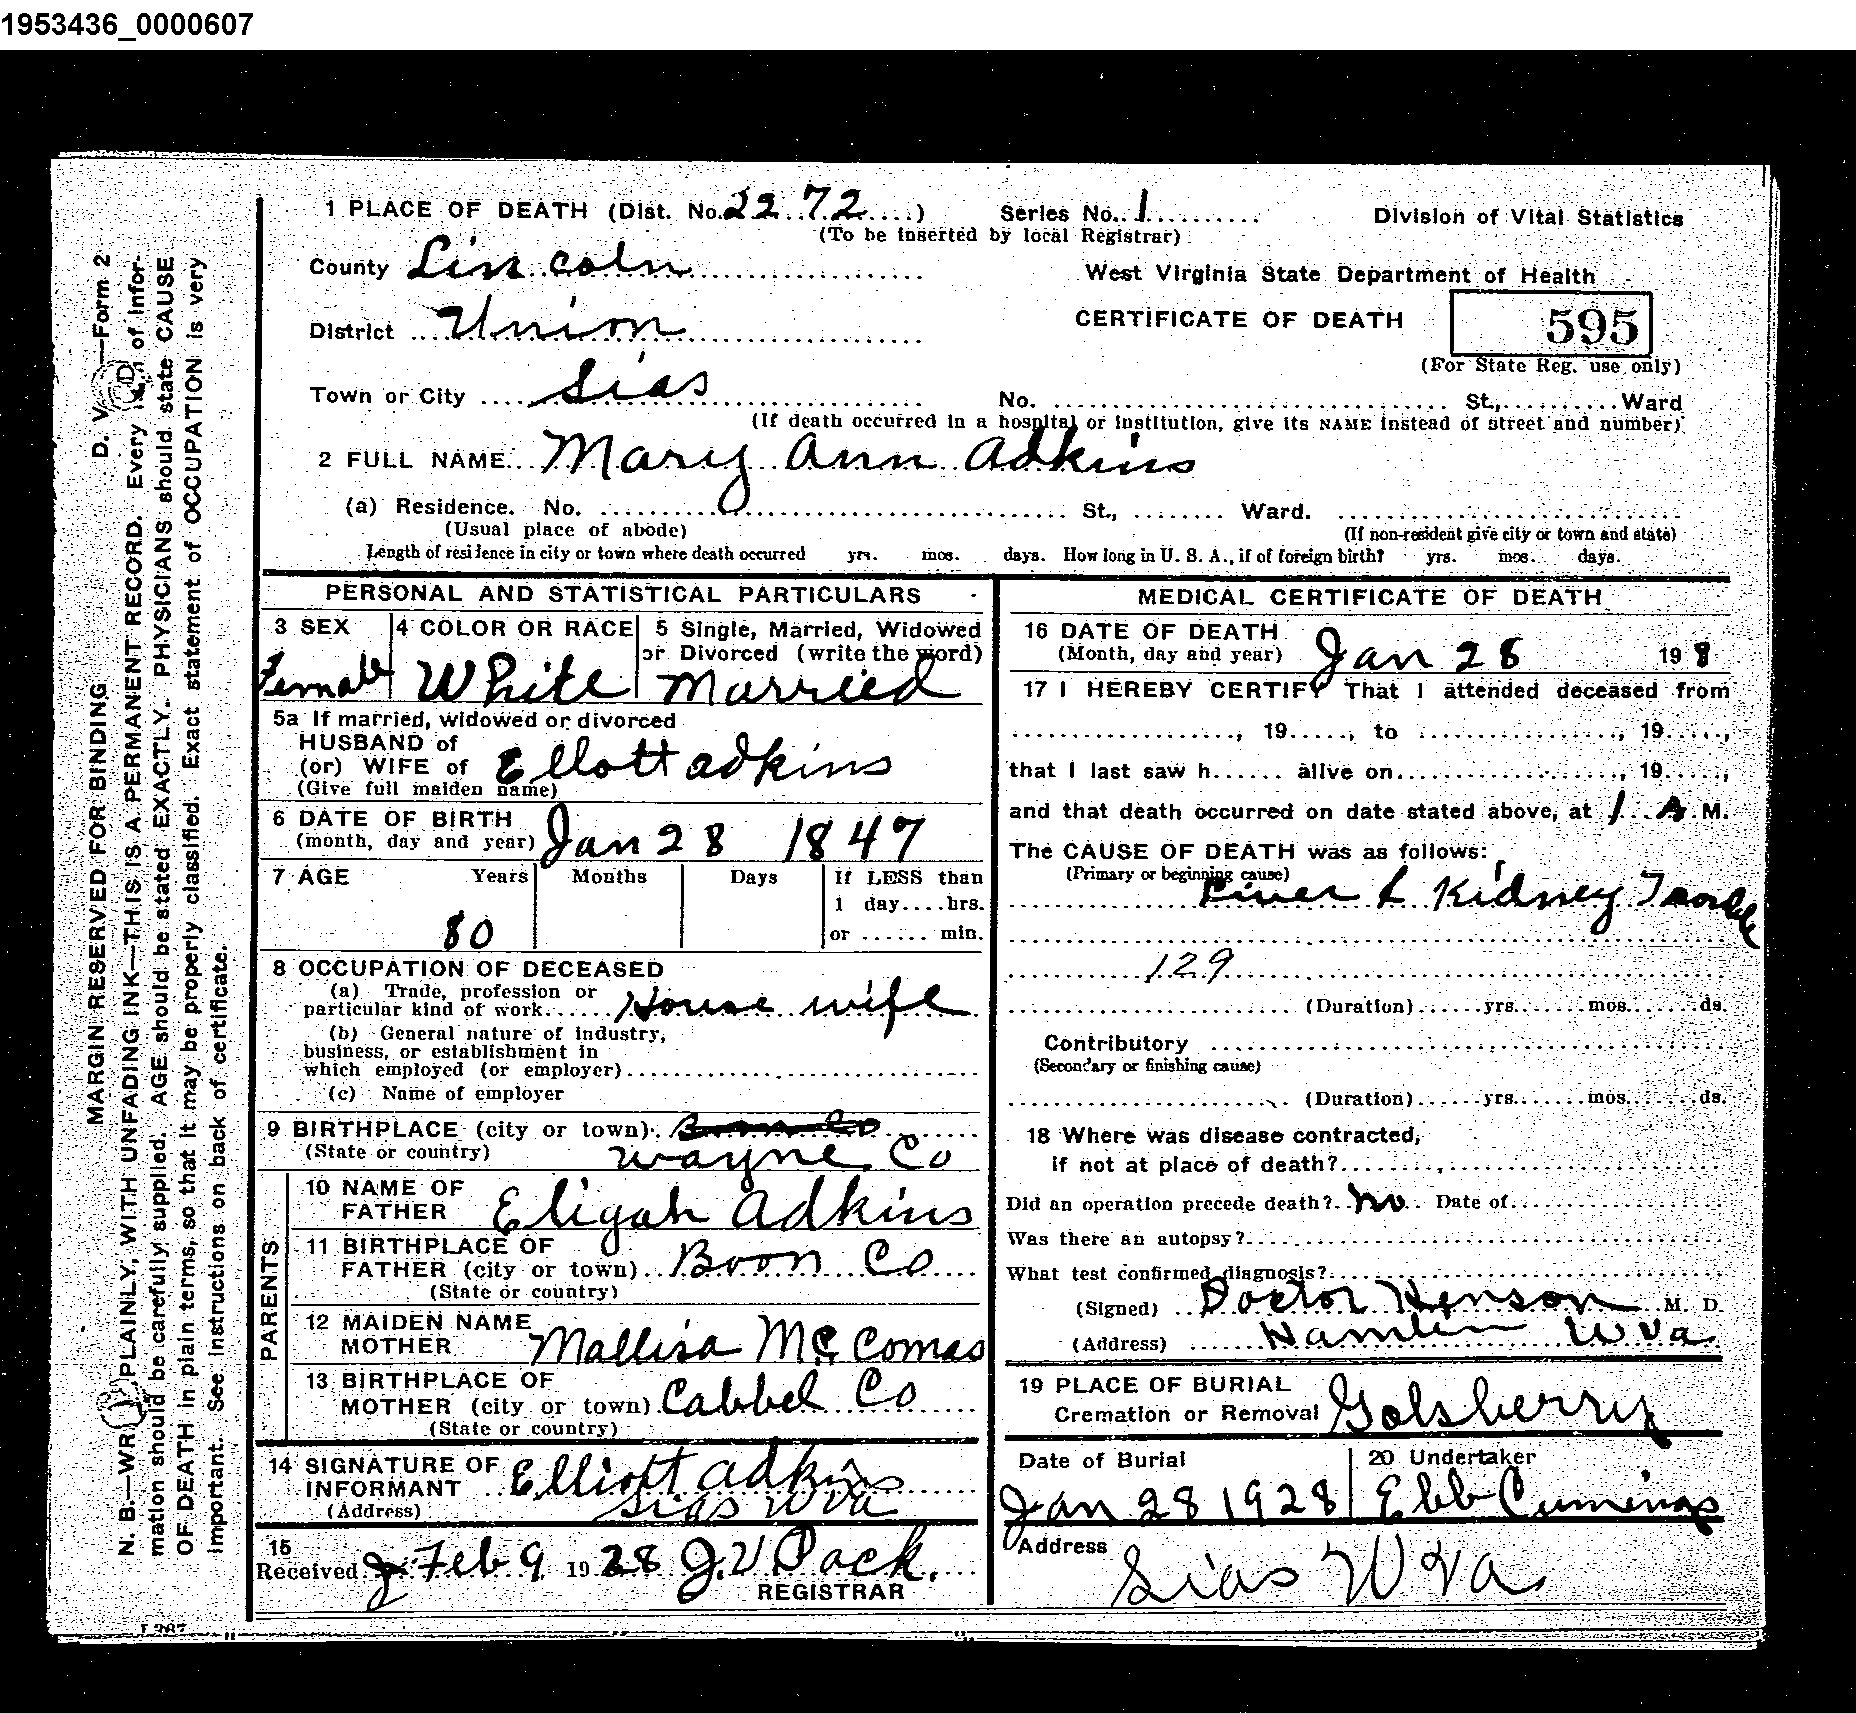 1953436_0000607
1 PLACE OF DEATH (Dist. No. 22 72) Series No. 1 Division of Vital Statistics
(To be inserted by local Registrar)
County Lincoln
West Virginia State Department of Health
District Union
CERTIFICATE OF DEATH 595
(For State Reg. use only)
Town or City Sias
No. St., Ward
(If death occurred in a hospital or institution, give its NAME instead of street and number)
2 FULL NAME Mary Ann Adkins
(a) Residence. No. St., Ward.
(Usual place of abode) (If non-resident give city or town and state)
Length of residence in city or town where death occurred yrs. mos. days. How long in U. S. A., if of foreign birth? yrs. mos. days.
PERSONAL AND STATISTICAL PARTICULARS
3 SEX 4 COLOR OR RACE 5 Single, Married, Widowed
or Divorced (write the word)
Female White Married
5a If married, widowed or divorced
HUSBAND of
(or) WIFE of Ellott Adkins
(Give full maiden name)
6 DATE OF BIRTH
(month, day and year) Jan 28 1847
7 AGE Years Months Days If LESS than
1 day....hrs.
80 or ...... min.
8 OCCUPATION OF DECEASED
(a) Trade, profession or
particular kind of work House wife
(b) General nature of industry,
business, or establishment in
which employed (or employer)
(c) Name of employer
9 BIRTHPLACE (city or town) Boon Co
(State or country) Wayne Co
PARENTS
10 NAME OF
FATHER Eligah Adkins
11 BIRTHPLACE OF
FATHER (city or town) Boon Co
(State or country)
12 MAIDEN NAME
MOTHER Mallisa McComas
13 BIRTHPLACE OF
MOTHER (city or town) Cabbel Co
(State or country)
14 SIGNATURE OF
INFORMANT Elliott Adkins
(Address) Sias W Va
15
Received Feb 9 1928 J. V Pack.
REGISTRAR
MEDICAL CERTIFICATE OF DEATH
16 DATE OF DEATH
(Month, day and year) Jan 28 19 8
17 I HEREBY CERTIFY That I attended deceased from
, 19....., to , 19.....,
that I last saw h...... alive on , 19.....,
and that death occurred on date stated above, at 1 A M.
The CAUSE OF DEATH was as follows:
(Primary or beginning cause)
Liver & Kidney
129
(Duration) yrs. mos. ds.
Contributory
(Secondary or finishing cause)
(Duration) yrs. mos. ds.
18 Where was disease contracted,
if not at place of death?
Did an operation precede death? No Date of
Was there an autopsy?
What test confirmed diagnosis?
(Signed) Doctor Henson M. D.
(Address) Hamlin W Va
19 PLACE OF BURIAL
Cremation or Removal Golsberry
Date of Burial 20 Undertaker
Jan 28 1928 Ebb Cumings
Address
Sias W Va
MARGIN RESERVED FOR BINDING D. V.—Form 2
N. B.—WRITE PLAINLY, WITH UNFADING INK—THIS IS A PERMANENT RECORD. Every item of infor-
mation should be carefully supplied. AGE should be stated EXACTLY. PHYSICIANS should state CAUSE
OF DEATH in plain terms, so that it may be properly classified. Exact statement of OCCUPATION is very
important. See instructions on back of certificate.